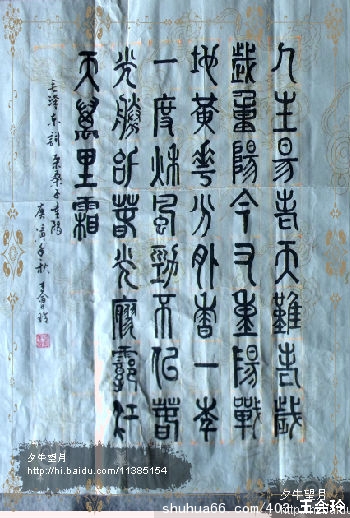 人生易老天難老歲
歲重陽今又重陽戰
地黃花分外香一年
一度秋風勁不似春
光勝似春光寥廓江
天萬里霜
毛澤東詞 采桑子重陽
庚寅年秋 王會玲
夕牛望月
http://hi.baidu.com/11385154
夕牛望月
shuhua66.com/403 王会玲